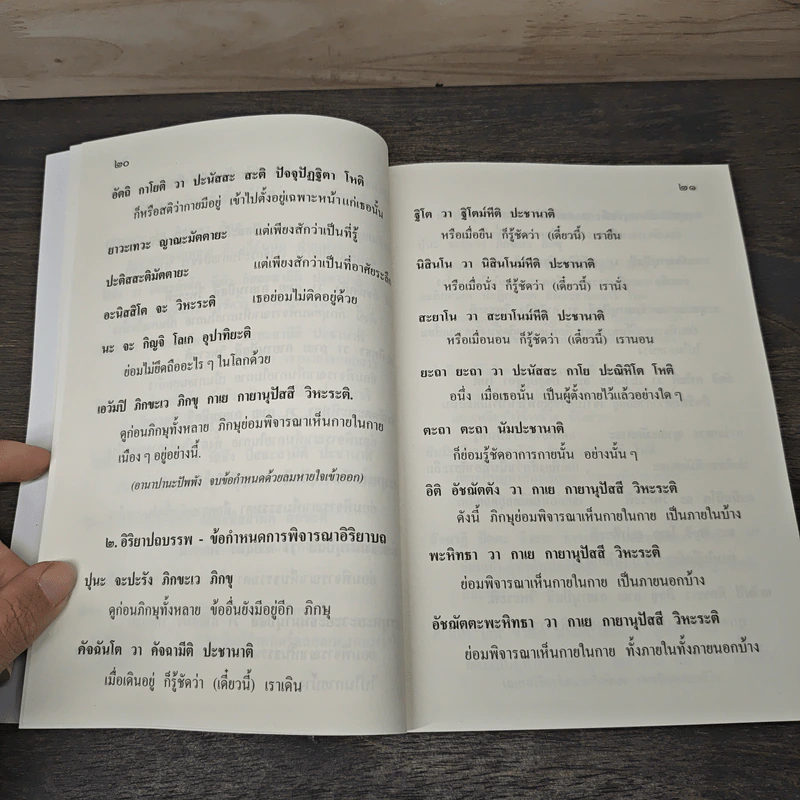 ๒๐
อัตถิ กาโยติ วา ปะนัสสะ สะติ ปัจจุปัฏฐิตา โหติ
ก็หรือสติว่ากายมีอยู่ เข้าไปตั้งอยู่เฉพาะหน้าแก่เธอนั้น
ยาวะเทวะ ญาณะมัตตายะ แต่เพียงสักว่าเป็นที่รู้
ปะติสสะติมัตตายะ แต่เพียงสักว่าเป็นที่อาศัยระลึก
อะนิสสิโต จะ วิหะระติ เธอย่อมไม่ติดอยู่ด้วย
นะ จะ กิญจิ โลเก อุปาทิยะติ
ย่อมไม่ยึดถืออะไร ๆ ในโลกด้วย
เอวัมปิ ภิกขะเว ภิกขุ กาเย กายานุปัสสี วิหะระติ.
ดูก่อนภิกษุทั้งหลาย ภิกษุย่อมพิจารณาเห็นกายในกาย
เนือง ๆ อยู่อย่างนี้.
(อานาปานะปัพพัง จบข้อกำหนดด้วยลมหายใจเข้าออก)
๒. อิริยาปถบรรพ - ข้อกำหนดการพิจารณาอิริยาบถ
ปุนะ จะปะรัง ภิกขะเว ภิกขุ
ดูก่อนภิกษุทั้งหลาย ข้ออื่นยังมีอยู่อีก ภิกษุ
คัจฉันโต วา คัจฉามีติ ปะชานาติ
เมื่อเดินอยู่ ก็รู้ชัดว่า (เดี๋ยวนี้) เราเดิน
๒๑
ฐิโต วา ฐิโตมหีติ ปะชานาติ
หรือเมื่อยืน ก็รู้ชัดว่า (เดี๋ยวนี้) เรายืน
นิสินโน วา นิสินโนมหีติ ปะชานาติ
หรือเมื่อนั่ง ก็รู้ชัดว่า (เดี๋ยวนี้) เรานั่ง
สะยาโน วา สะยาโนมหีติ ปะชานาติ
หรือเมื่อนอน ก็รู้ชัดว่า (เดี๋ยวนี้) เรานอน
ยะถา ยะถา วา ปะนัสสะ กาโย ปะณิหิโต โหติ
อนึ่ง เมื่อเธอนั้น เป็นผู้ตั้งกายไว้แล้วอย่างใด ๆ
ตะถา ตะถา นัมปะชานาติ
ก็ย่อมรู้ชัดอาการกายนั้น อย่างนั้น ๆ
อิติ อัชฌัตตัง วา กาเย กายานุปัสสี วิหะระติ
ดังนี้ ภิกษุย่อมพิจารณาเห็นกายในกาย เป็นภายในบ้าง
พะหิทธา วา กาเย กายานุปัสสี วิหะระติ
ย่อมพิจารณาเห็นกายในกาย เป็นภายนอกบ้าง
อัชฌัตตะพะหิทธา วา กาเย กายานุปัสสี วิหะระติ
ย่อมพิจารณาเห็นกายในกาย ทั้งภายในทั้งภายนอกบ้าง